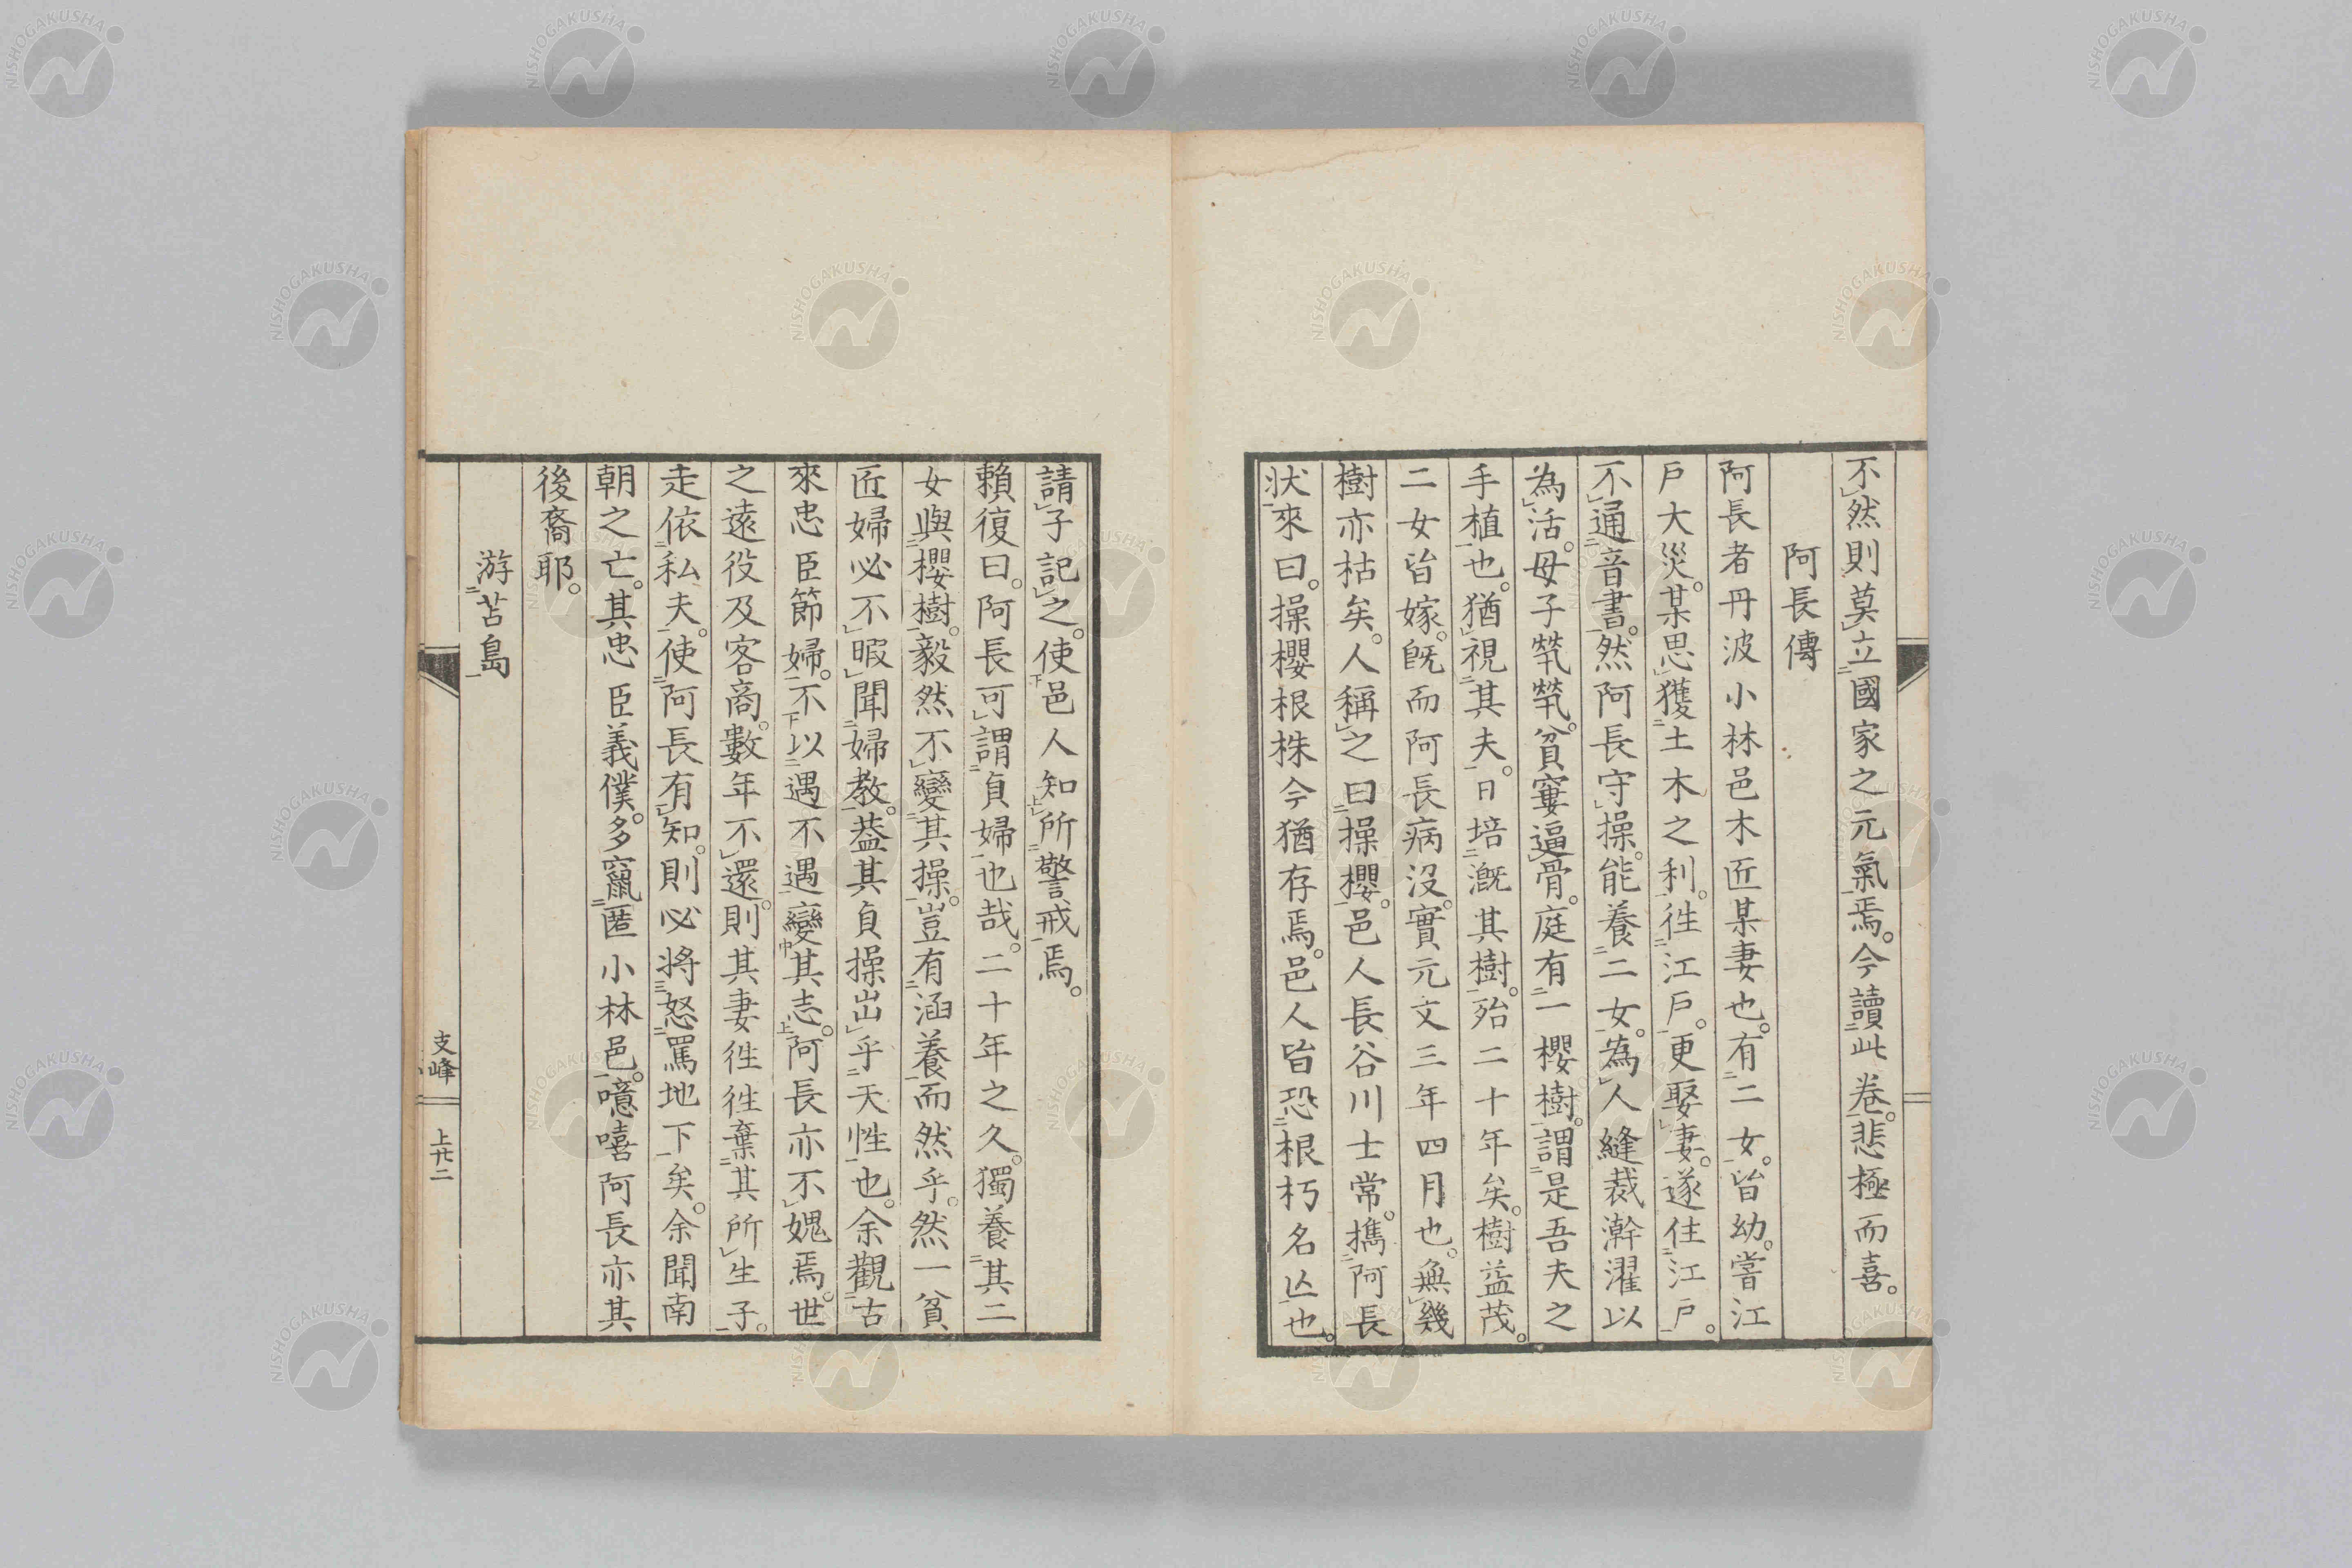 不然則莫立國家之元氣焉。今讀此卷。悲極而喜。
阿長傳
阿長者丹波小林邑木匠某妻也。有二女。皆幼。嘗江
戶大災。某思獲土木之利。徃江戶。更娶妻。遂住江戶。
不通音書。然阿長守操。能養二女。為人縫裁澣濯以
為活。母子煢煢。貧窶逼骨。庭有一櫻樹。謂是吾夫之
手植也。猶視其夫。日培漑其樹。殆二十年矣。樹益茂。
二女皆嫁。既而阿長病沒。實元文三年四月也。無幾
樹亦枯矣。人稱之曰操櫻。邑人長谷川士常。攜阿長
狀來曰。操櫻根株今猶存焉。邑人皆恐根朽名亾也。
請子記之。使邑人知所警戒焉。
賴復曰。阿長可謂貞婦也哉。二十年之久。獨養其二
女與櫻樹。毅然不變其操。豈有涵養而然乎。然一貧
匠婦必不暇聞婦教。葢其貞操出乎天性也。余觀古
來忠臣節婦。不以遇不遇變其志。阿長亦不媿焉。世
之遠役及客商。數年不還。則其妻徃徃棄其所生子。
走依私夫。使阿長有知。則必將怒罵地下矣。余聞南
朝之亡。其忠臣義僕。多竄匿小林邑。噫嘻阿長亦其
後裔耶。
游苫島
支峰
上廿二
NISHOGAKUSHA